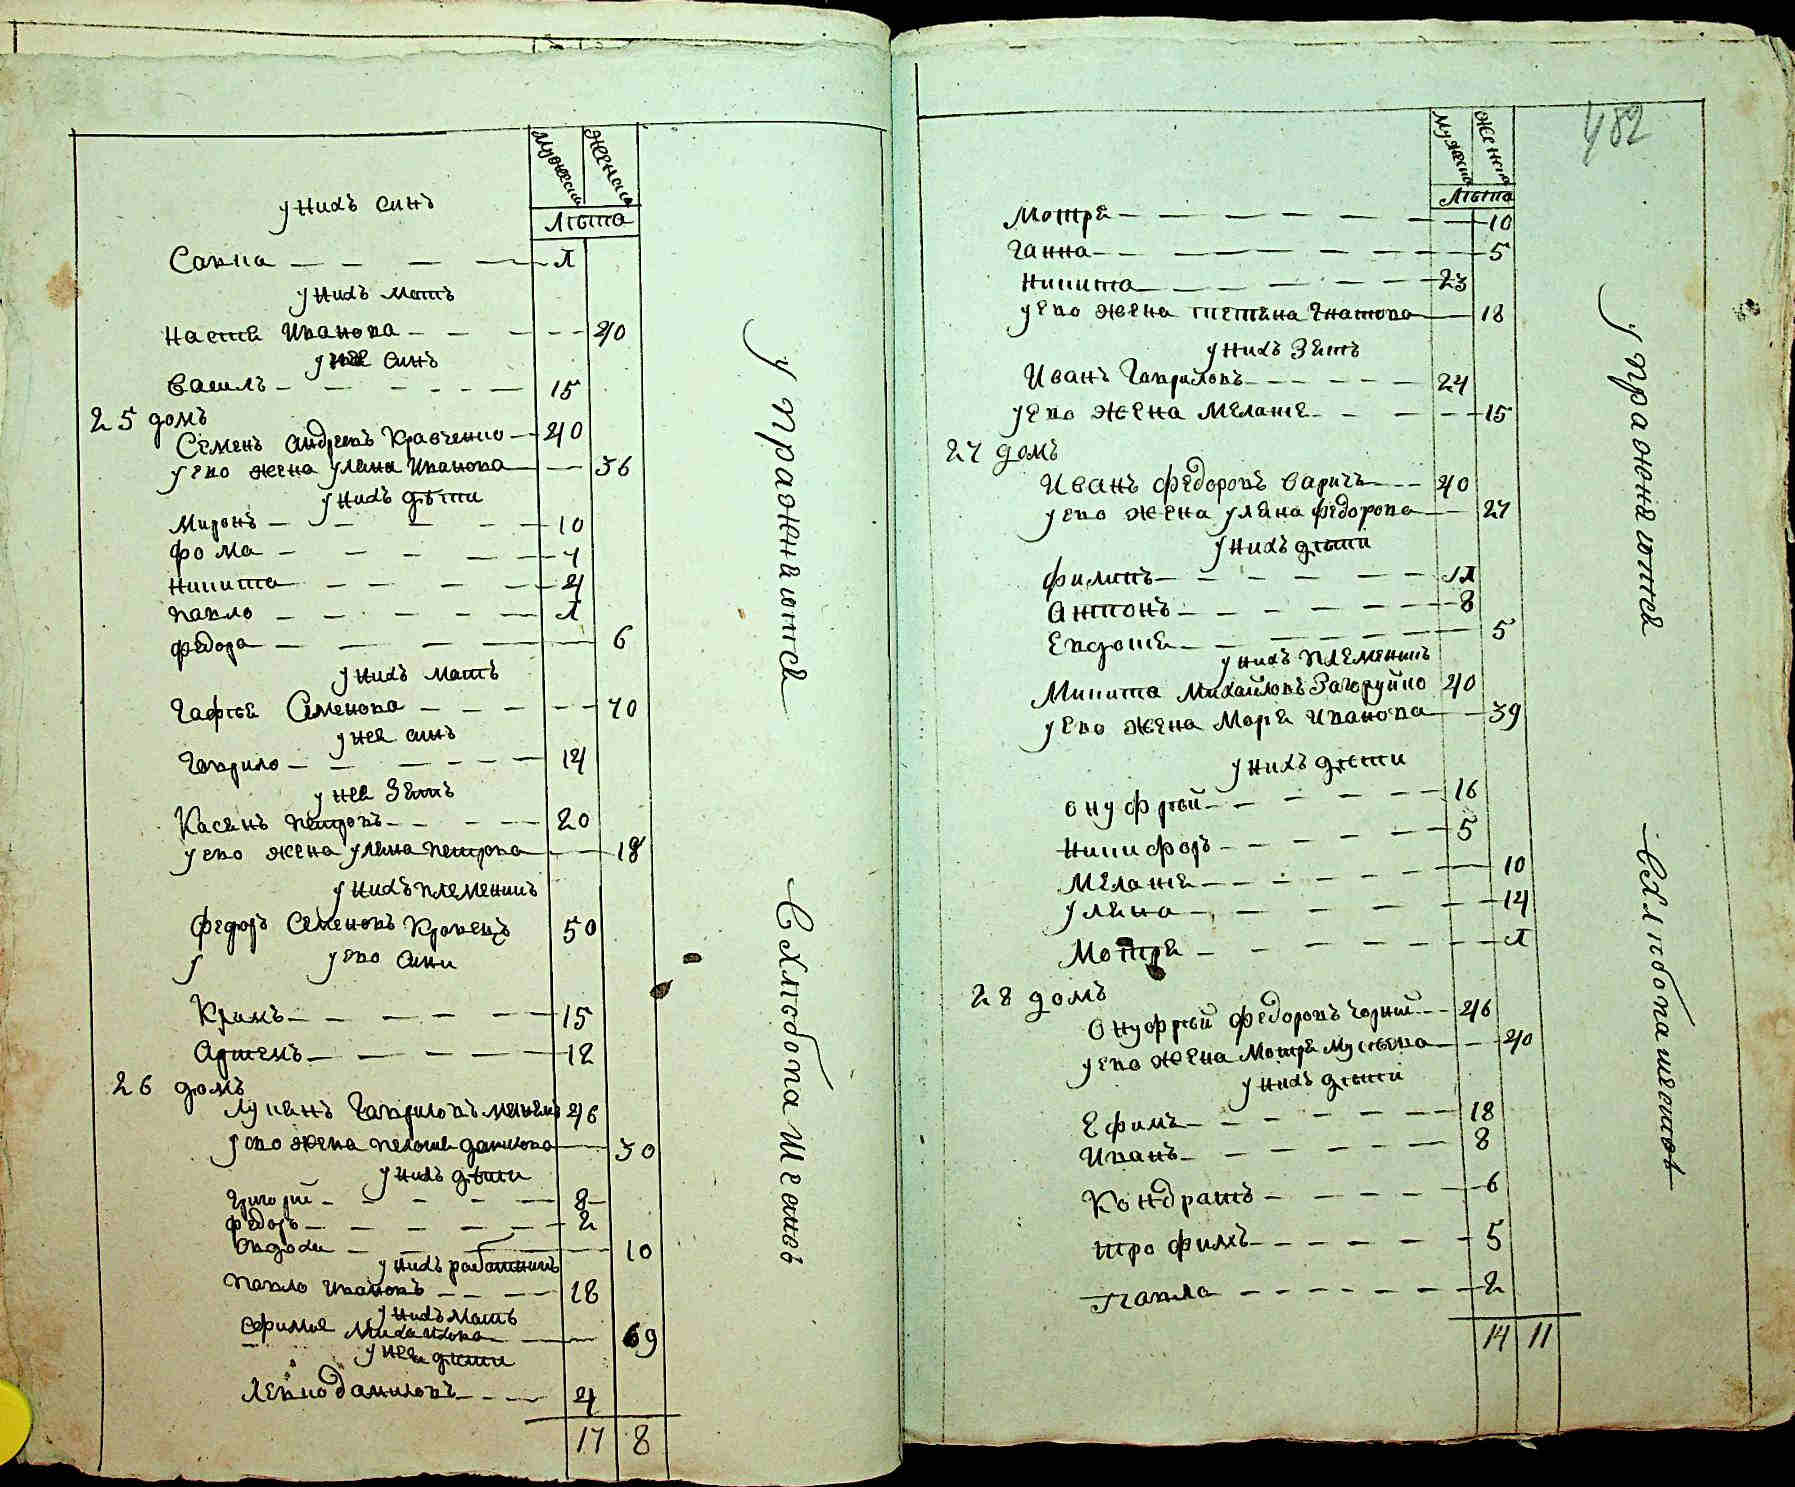 Мужеска Женска
Лѣта
у нихъ синъ
Савка — Л
у нихъ мать
Настя Иванова — 40
у нее синъ
Василь — 15
25 домъ
Семенъ Андреевъ Кравченко — 40
у его жена уляна Иванова — 36
у нихъ дѣти
Миронъ — 10
Фома — 7
Никита — 4
Павло — Л
Федора — 6
у нихъ мать
Гафия Семенова — 70
у нея синъ
Гаврило — 14
у нея зять
Касянъ Петровъ — 20
у его жена уляна Петрова — 18
у нихъ племеникъ
Федоръ Семеновъ Кравецъ 50
у его сини
Климъ — 15
Артемъ — 12
26 домъ
Лукянъ Гавриловъ 46
у его жена Пелагия Данилова — 30
у нихъ дѣти
Григорий — 8
Федоръ — 2
Овдотя — 10
у нихъ работникъ
Павло Ивановъ — 18
у нихъ мать
Ефимия Михайлова — 69
у нея дѣти
Левко Даниловъ — 4
17 8
упражняются
В хлѣбопашествѣ
482
Мужеска Женска
Лѣта
Мотря — 10
Ганна — 5
Никита — 23
у его жена Тетяна Игнатова — 18
у нихъ зять
Иванъ Гавриловъ — 24
у его жена Меланя — 15
27 домъ
Иванъ Федоровъ Варичъ — 40
у его жена уляна Федорова — 27
у нихъ дѣти
Филипъ — 1Л
Антонъ — 8
Евдотя — 5
у нихъ племеникъ
Микита Михайловъ Загоруйко 40
у его жена Марія Иванова — 39
у нихъ дѣти
Онуфрѣй — 16
Никифоръ — 5
Меланя — 10
уляна — 14
Мотря — Л
28 домъ
Онуфрѣй Федоровъ Чорній — 46
у его жена Мотря — 40
у нихъ дѣти
Ефимъ — 18
Иванъ — 8
Кондратъ — 6
Трофимъ — 5
Павла — 2
14 11
упражняются
В хлѣбопашествѣ